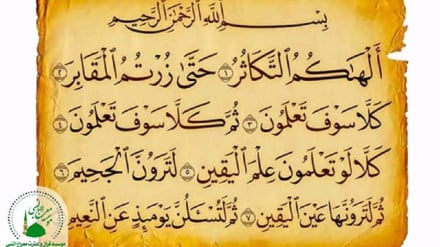 بِسْمِ ٱللَّهِ ٱلرَّحْمَٰنِ ٱلرَّحِيمِ
أَلْهَىٰكُمُ ٱلتَّكَاثُرُ ١ حَتَّىٰ زُرْتُمُ ٱلْمَقَابِرَ ٢
كَلَّا سَوْفَ تَعْلَمُونَ ٣ ثُمَّ كَلَّا سَوْفَ تَعْلَمُونَ ٤
كَلَّا لَوْ تَعْلَمُونَ عِلْمَ ٱلْيَقِينِ ٥ لَتَرَوُنَّ ٱلْجَحِيمَ ٦
ثُمَّ لَتَرَوُنَّهَا عَيْنَ ٱلْيَقِينِ ٧ ثُمَّ لَتُسْـَٔلُنَّ يَوْمَئِذٍ عَنِ ٱلنَّعِيمِ
موسسه قرآن و عترت معراج النبی